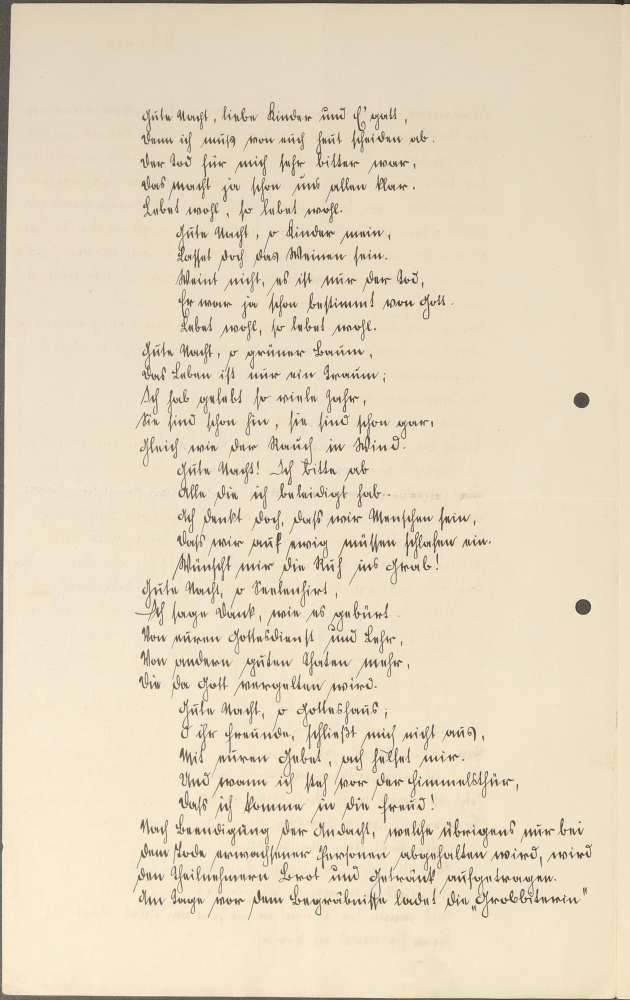 Gute Nacht, liebe Kinder und E'gatt,
Denn ich muß von euch heut scheiden ab.
Der Tod für mich sehr bitter war,
Das macht ja schon uns allen klar.
Lebet wohl, so lebet wohl.
Gute Nacht, o Kinder mein,
Lasset doch das Weinen sein.
Weint nicht, es ist nur der Tod,
Er war ja schon bestimmt von Gott.
Lebet wohl, so lebet wohl.
Gute Nacht, o grüner Baum,
Das Leben ist nur ein Traum;
Ich hab gelebt so viele Jahr,
Sie sind schon hin, sie sind schon gar,
Gleich wie der Rauch in Wind.
Gute Nacht! Ich bitte ab
Alle die ich beleidigt hab.
Ach denkt doch, dass wir Menschen sein,
Dass wir auf ewig müssen schlafen ein.
Wünscht mir die Ruh ins Grab!
Gute Nacht, o Seelenhirt,
Ich sage Dank, wie es gebürt
Von euren Gottesdienst und Lehr,
Von andern guten Thaten mehr,
Die da Gott vergelten wird.
Gute Nacht, o Gotteshaus;
O ihr Freunde, schließt mich nicht aus,
Mit euren Gebet, ach helfet mir.
Und wann ich steh vor der Himmelsthür,
Dass ich komme in die Freud!
Nach Beendigung der Andacht, welche übrigens nur bei
dem Tode erwachsener Personen abgehalten wird, wird
den Theilnehmern Brot und Getränk aufgetragen.
Am Tage vor dem Begräbnisse ladet die „Grobbiterin"